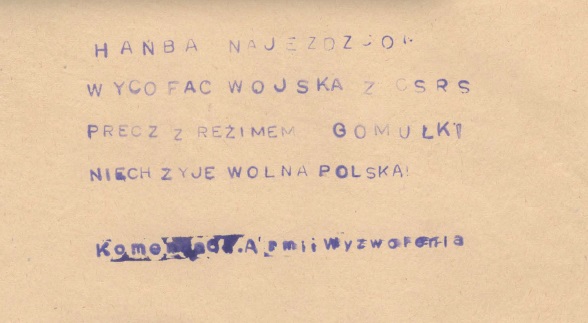 HAŃBA NAJEZDZCOM
WYCOFAC WOJSKA Z CSRS
PRECZ Z REŻIMEM GOMUŁKI
NIECH ŻYJE WOLNA POLSKA!
Komenda Armii Wyzwolenia